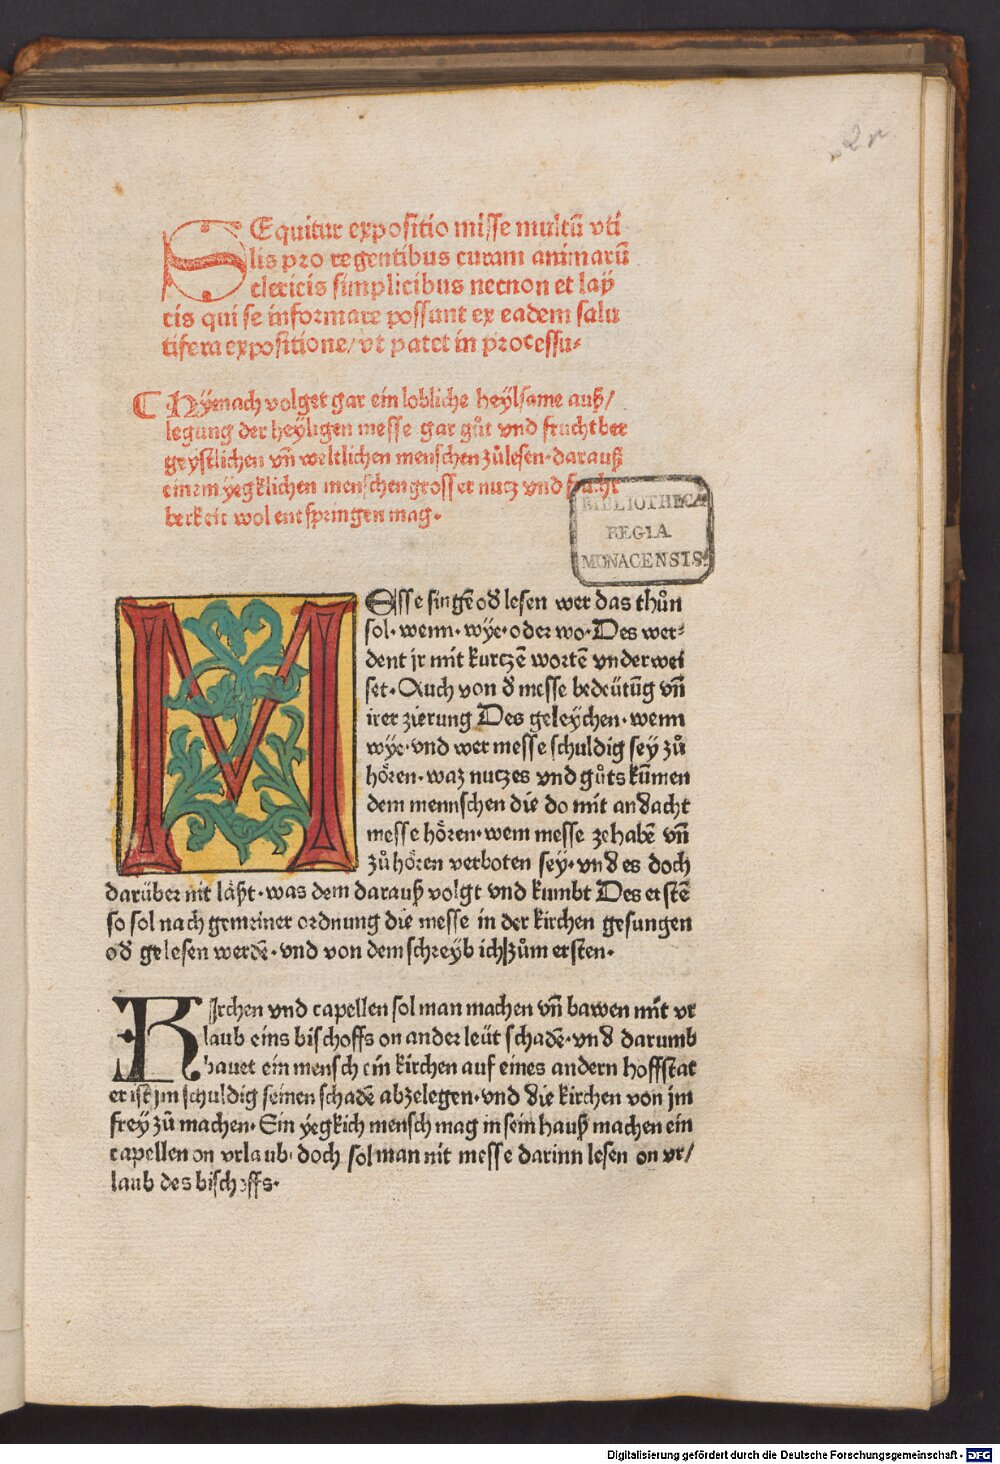 2r
SEquitur expositio misse multū vti
lis pro regentibus curam animarū
clericis simplicibus necnon et laÿ
cis qui se informare possunt ex eadem salu
tifera expositione/ vt patet in processu.
C Hÿenach volget gar ein lobliche heÿlsame auß/
legung der heÿligen messe gar gůt vnd fruchtber
geystlichen vn̄ weltlichen menschen zůlesen. darauß
einem ÿegklichen menschen grosser nutz vnd frucht
berkeit wol entspringen mag.
BIBLIOTHECA
REGIA
MONACENSIS.
MEsse singē od lesen wer das thůn
sol. wenn. wÿe. oder wo. Des wer⸗
dent jr mit kurtzē wortē vnderwei
set. Auch von d messe bedeütūg vn̄
irer zierung Des geleÿchen. wenn
wÿe. vnd wer messe schuldig seÿ zů
hoͤren. waz nutzes vnd gůts kūmen
dem mennschen die do mit andacht
messe hoͤren. wem messe zehabē vn̄
zů hoͤren verboten sey. vnd es doch
darüber nit laͤßt. was dem darauß volgt vnd kumbt Des erstē
so sol nach gemeiner ordnung die messe in der kirchen gesungen
od gelesen werdē. vnd von dem schreyb ich zům ersten.
KIrchen vnd capellen sol man machen vn̄ bawen mit vr
laub eins bischoffs on ander leüt schadē. vnd darumb
bauet ein mensch ein kirchen auf eines andern hoffstat
er ist jm schuldig seinen schadē abzelegen. vnd die kirchen von jm
frey zů machen. Ein ÿegkich mensch mag in sein hauß machen ein
capellen on vrlaub. doch sol man nit messe darinn lesen on vr/
laub des bischoffs.
Digitalisierung gefördert durch die Deutsche Forschungsgemeinschaft - DFG